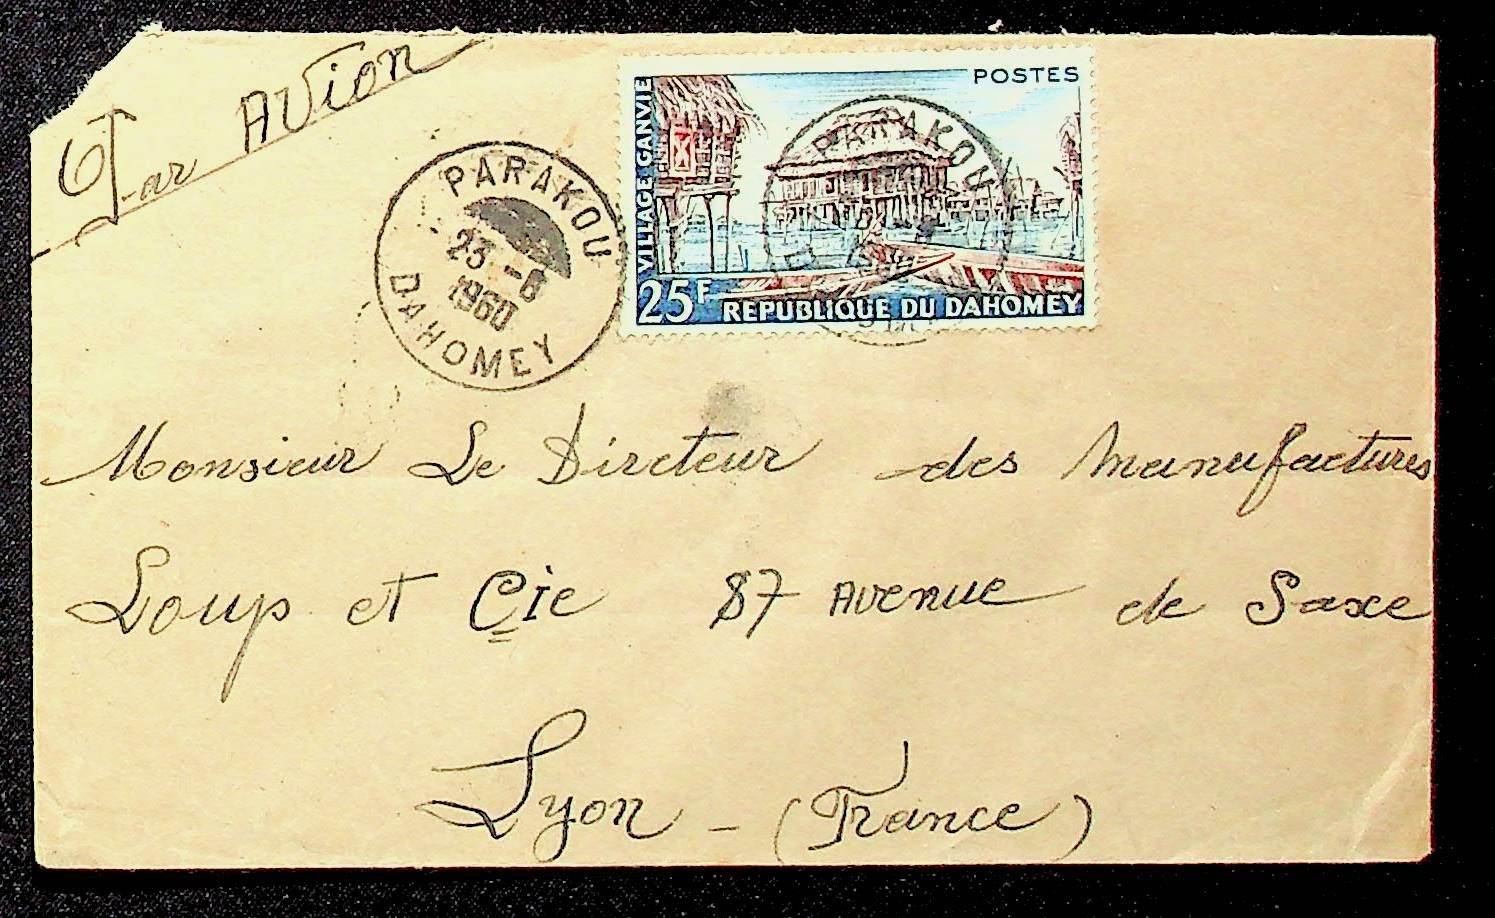 Par Avion
PARAKOU
23 -8
1960
DAHOMEY
POSTES
VILLAGE GANVIE
25F REPUBLIQUE DU DAHOMEY
PARAKOU
Monsieur Le Directeur des Manufactures
Loup et Cie 87 Avenue de Saxe
Lyon - (France)